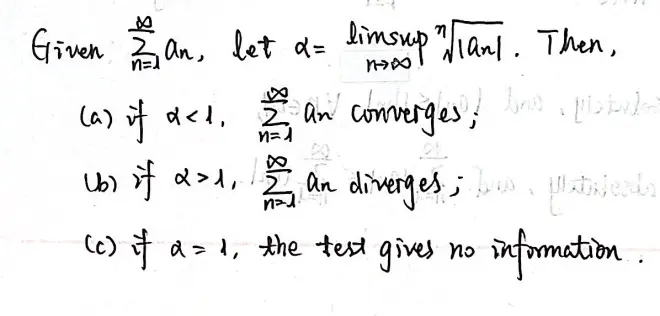 Given ∑_{n=1}^{∞} a_n, let α = limsup_{n→∞} ⁿ√|a_n|. Then,
(a) if α < 1, ∑_{n=1}^{∞} a_n converges;
(b) if α > 1, ∑_{n=1}^{∞} a_n diverges;
(c) if α = 1, the test gives no information.